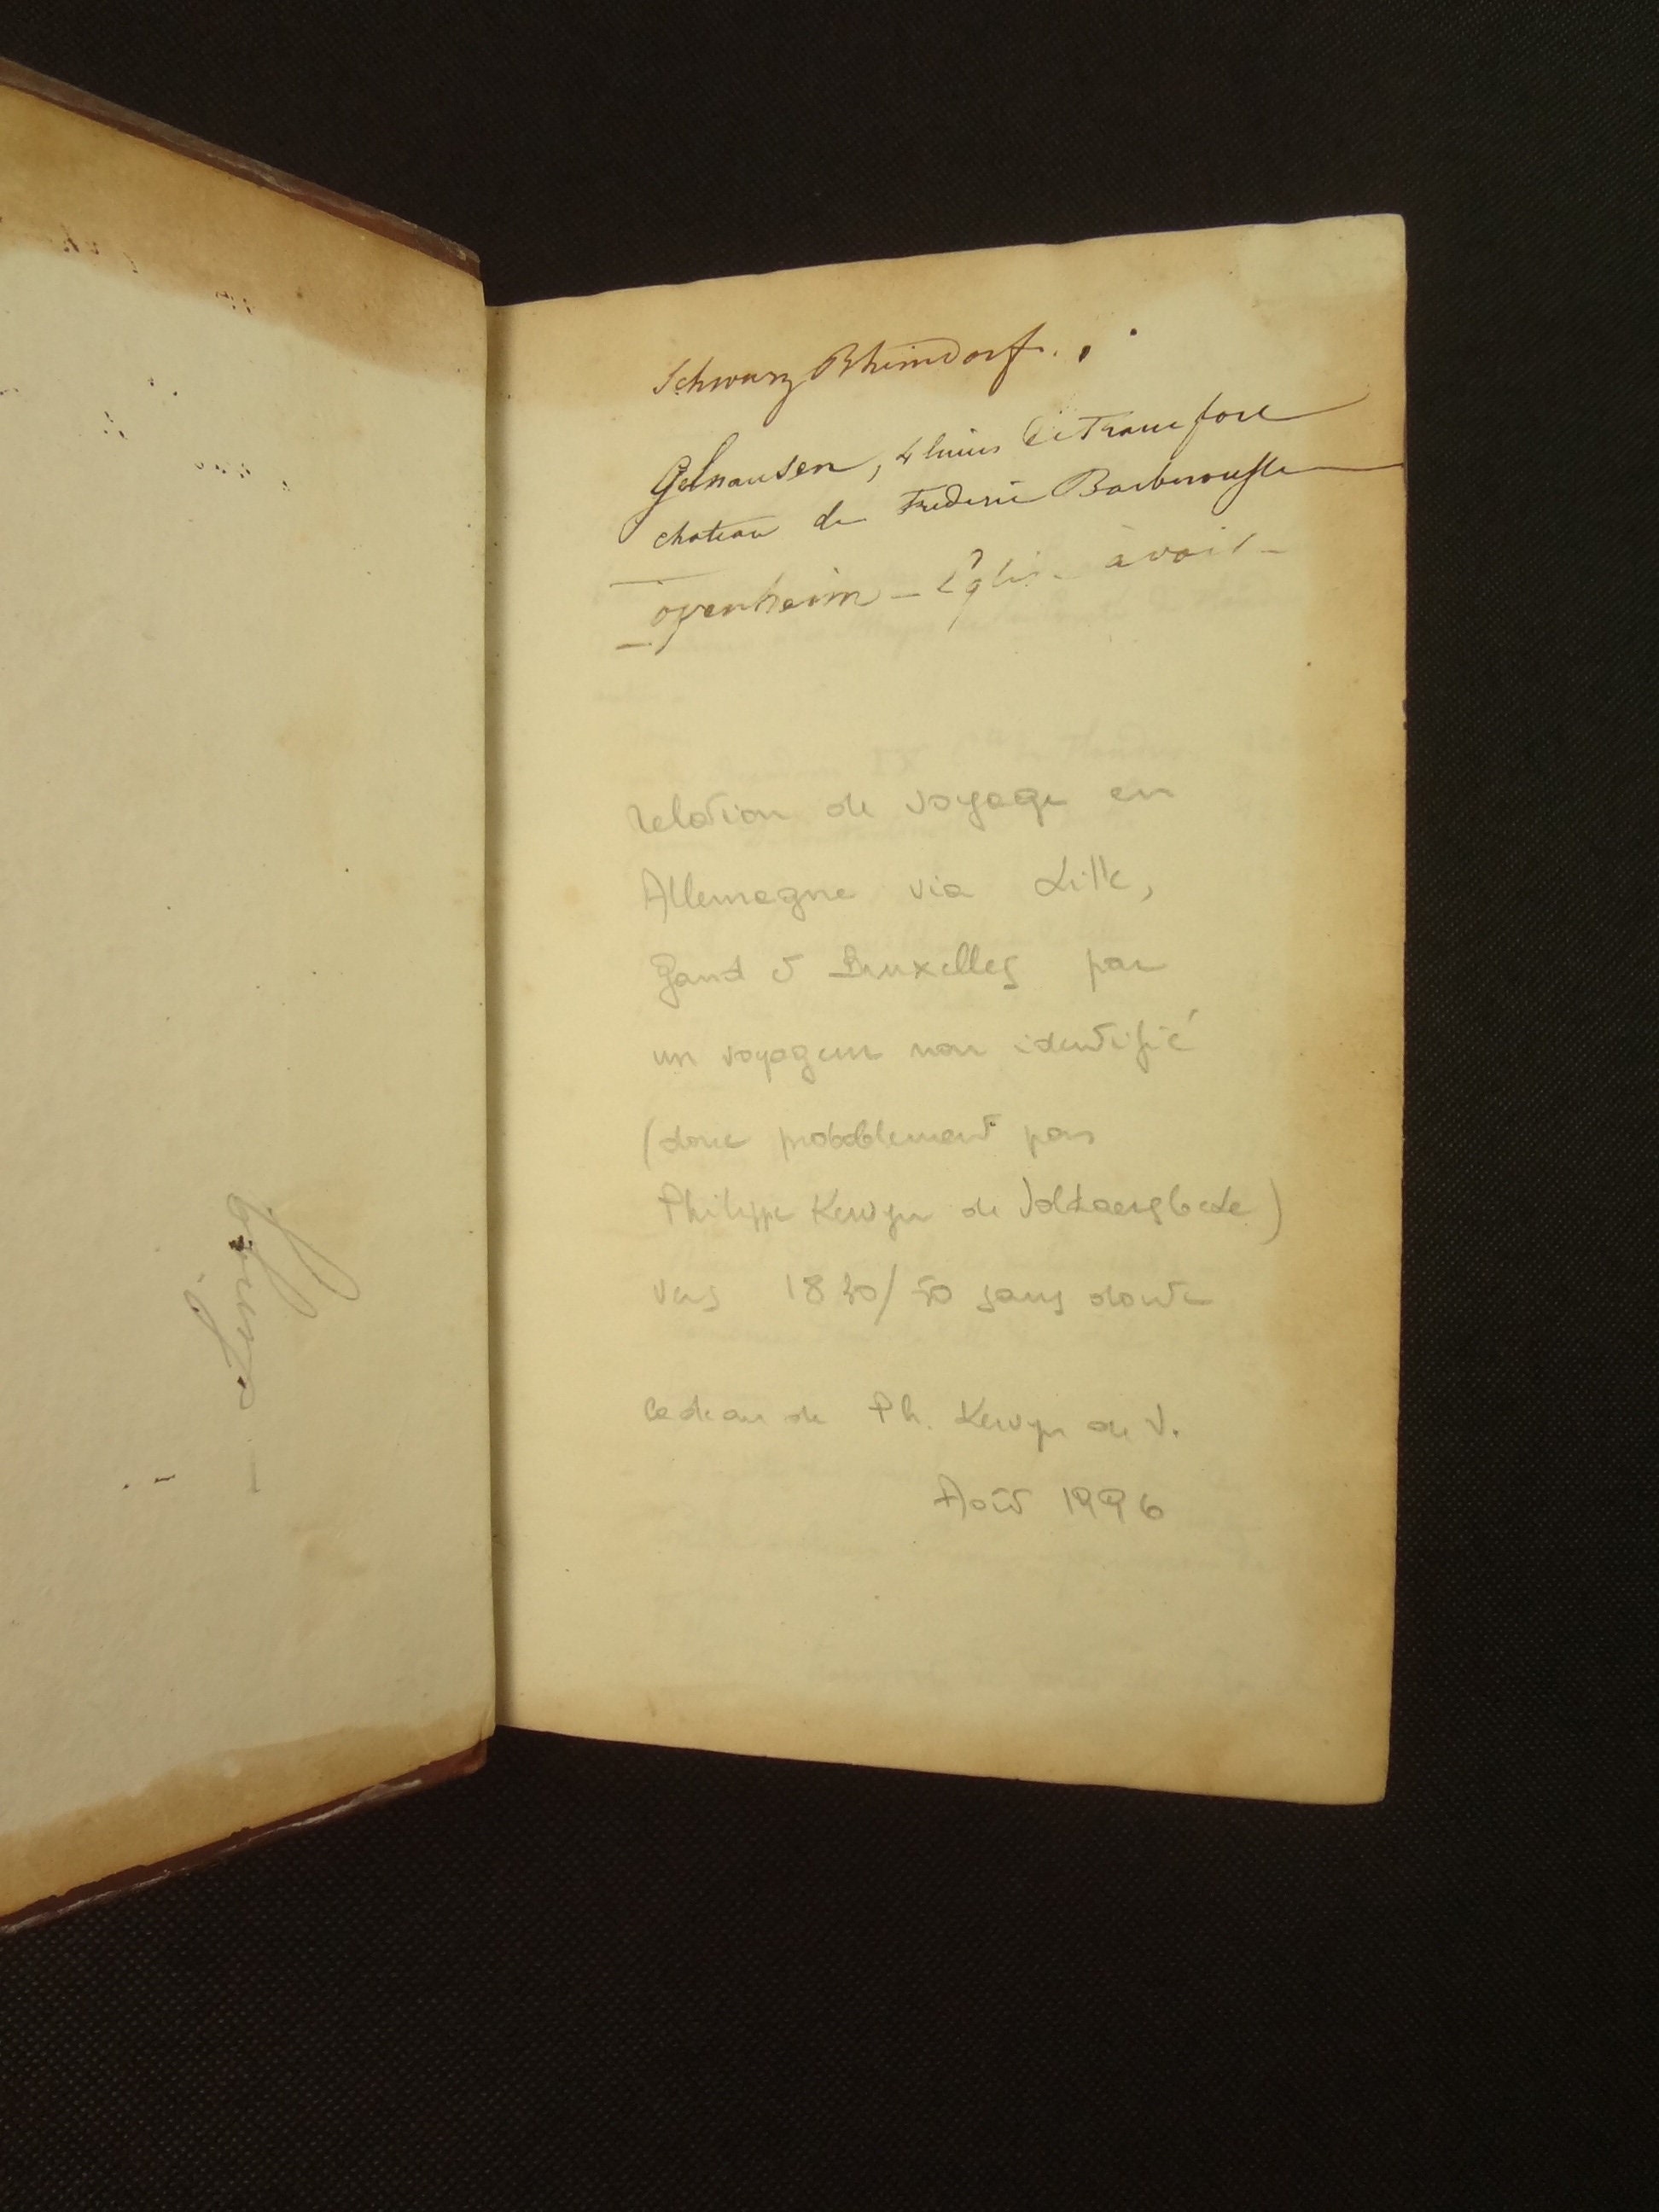 Schwarz Rheindorf.
Gelnausen, 4 lieues de Francfort
chateau de Frederic Barberousse
openheim - Eglise à voir -
relation de voyage en
Allemagne via Lille,
Gand et Bruxelles par
un voyageur non identifié
(donc probablement pas
Philippe Kervyn de Volkaersbeke)
vers 1840/50 sans doute
cadeau de Ph. Kervyn de V.
Août 1996